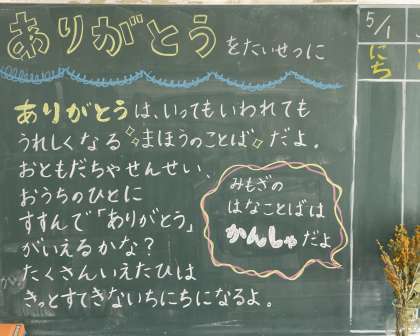 ありがとうをたいせつに
ありがとうは、いってもいわれても
うれしくなるまほうのことばだよ。
おともだちやせんせい、
おうちのひとに
すすんで「ありがとう」
がいえるかな？
たくさんいえたひは
きっとすてきないちにちになるよ。
みもざの
はなことばは
かんしゃだよ
5/1
にち